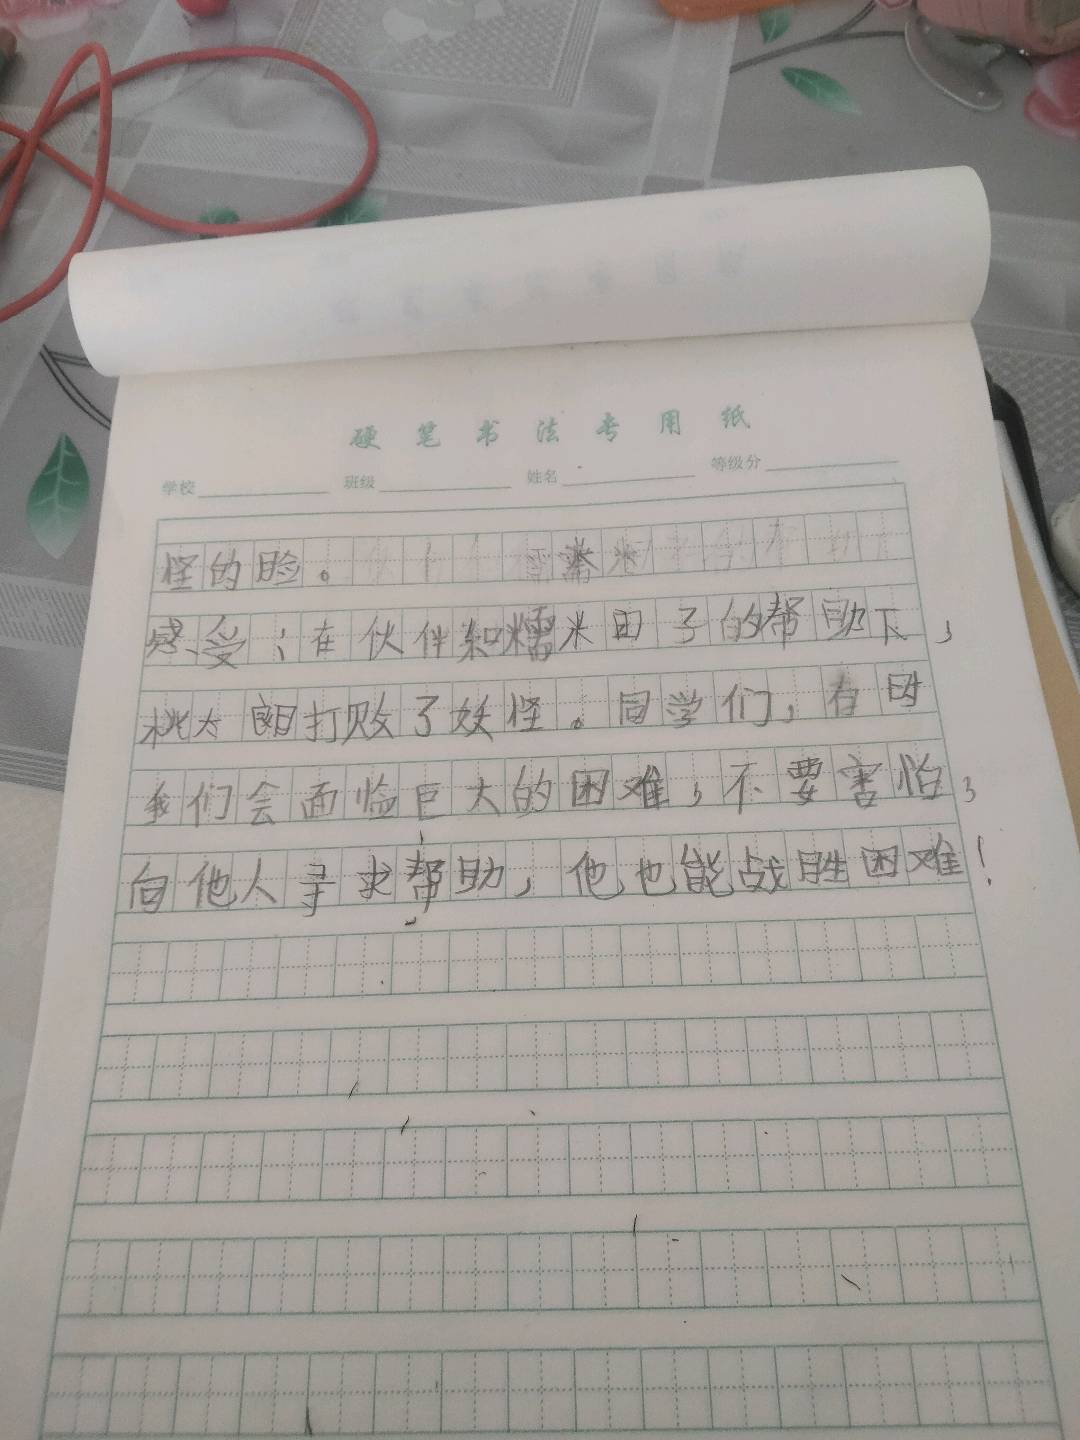 硬笔书法专用纸
学校 班级 姓名 等级分
怪的脸。
感受：在伙伴和糯米团子的帮助下，
桃太郎打败了妖怪。同学们，在
我们会面临巨大的困难，不要害怕，
向他人寻求帮助，他也能战胜困难！